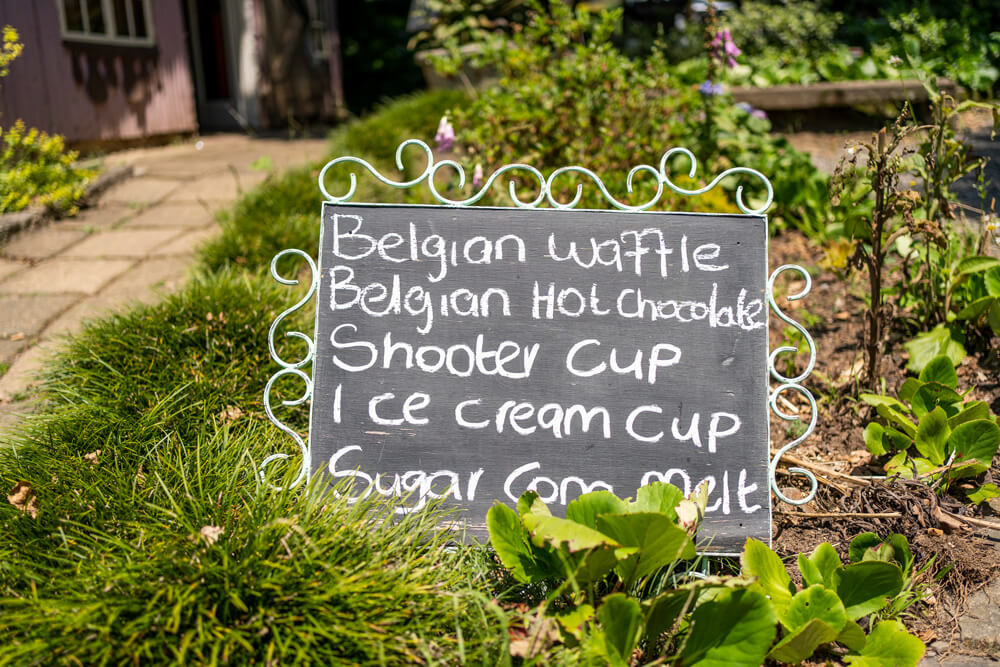 Belgian waffle
Belgian Hot chocolate
Shooter cup
Ice cream cup
Sugar Corn Melt